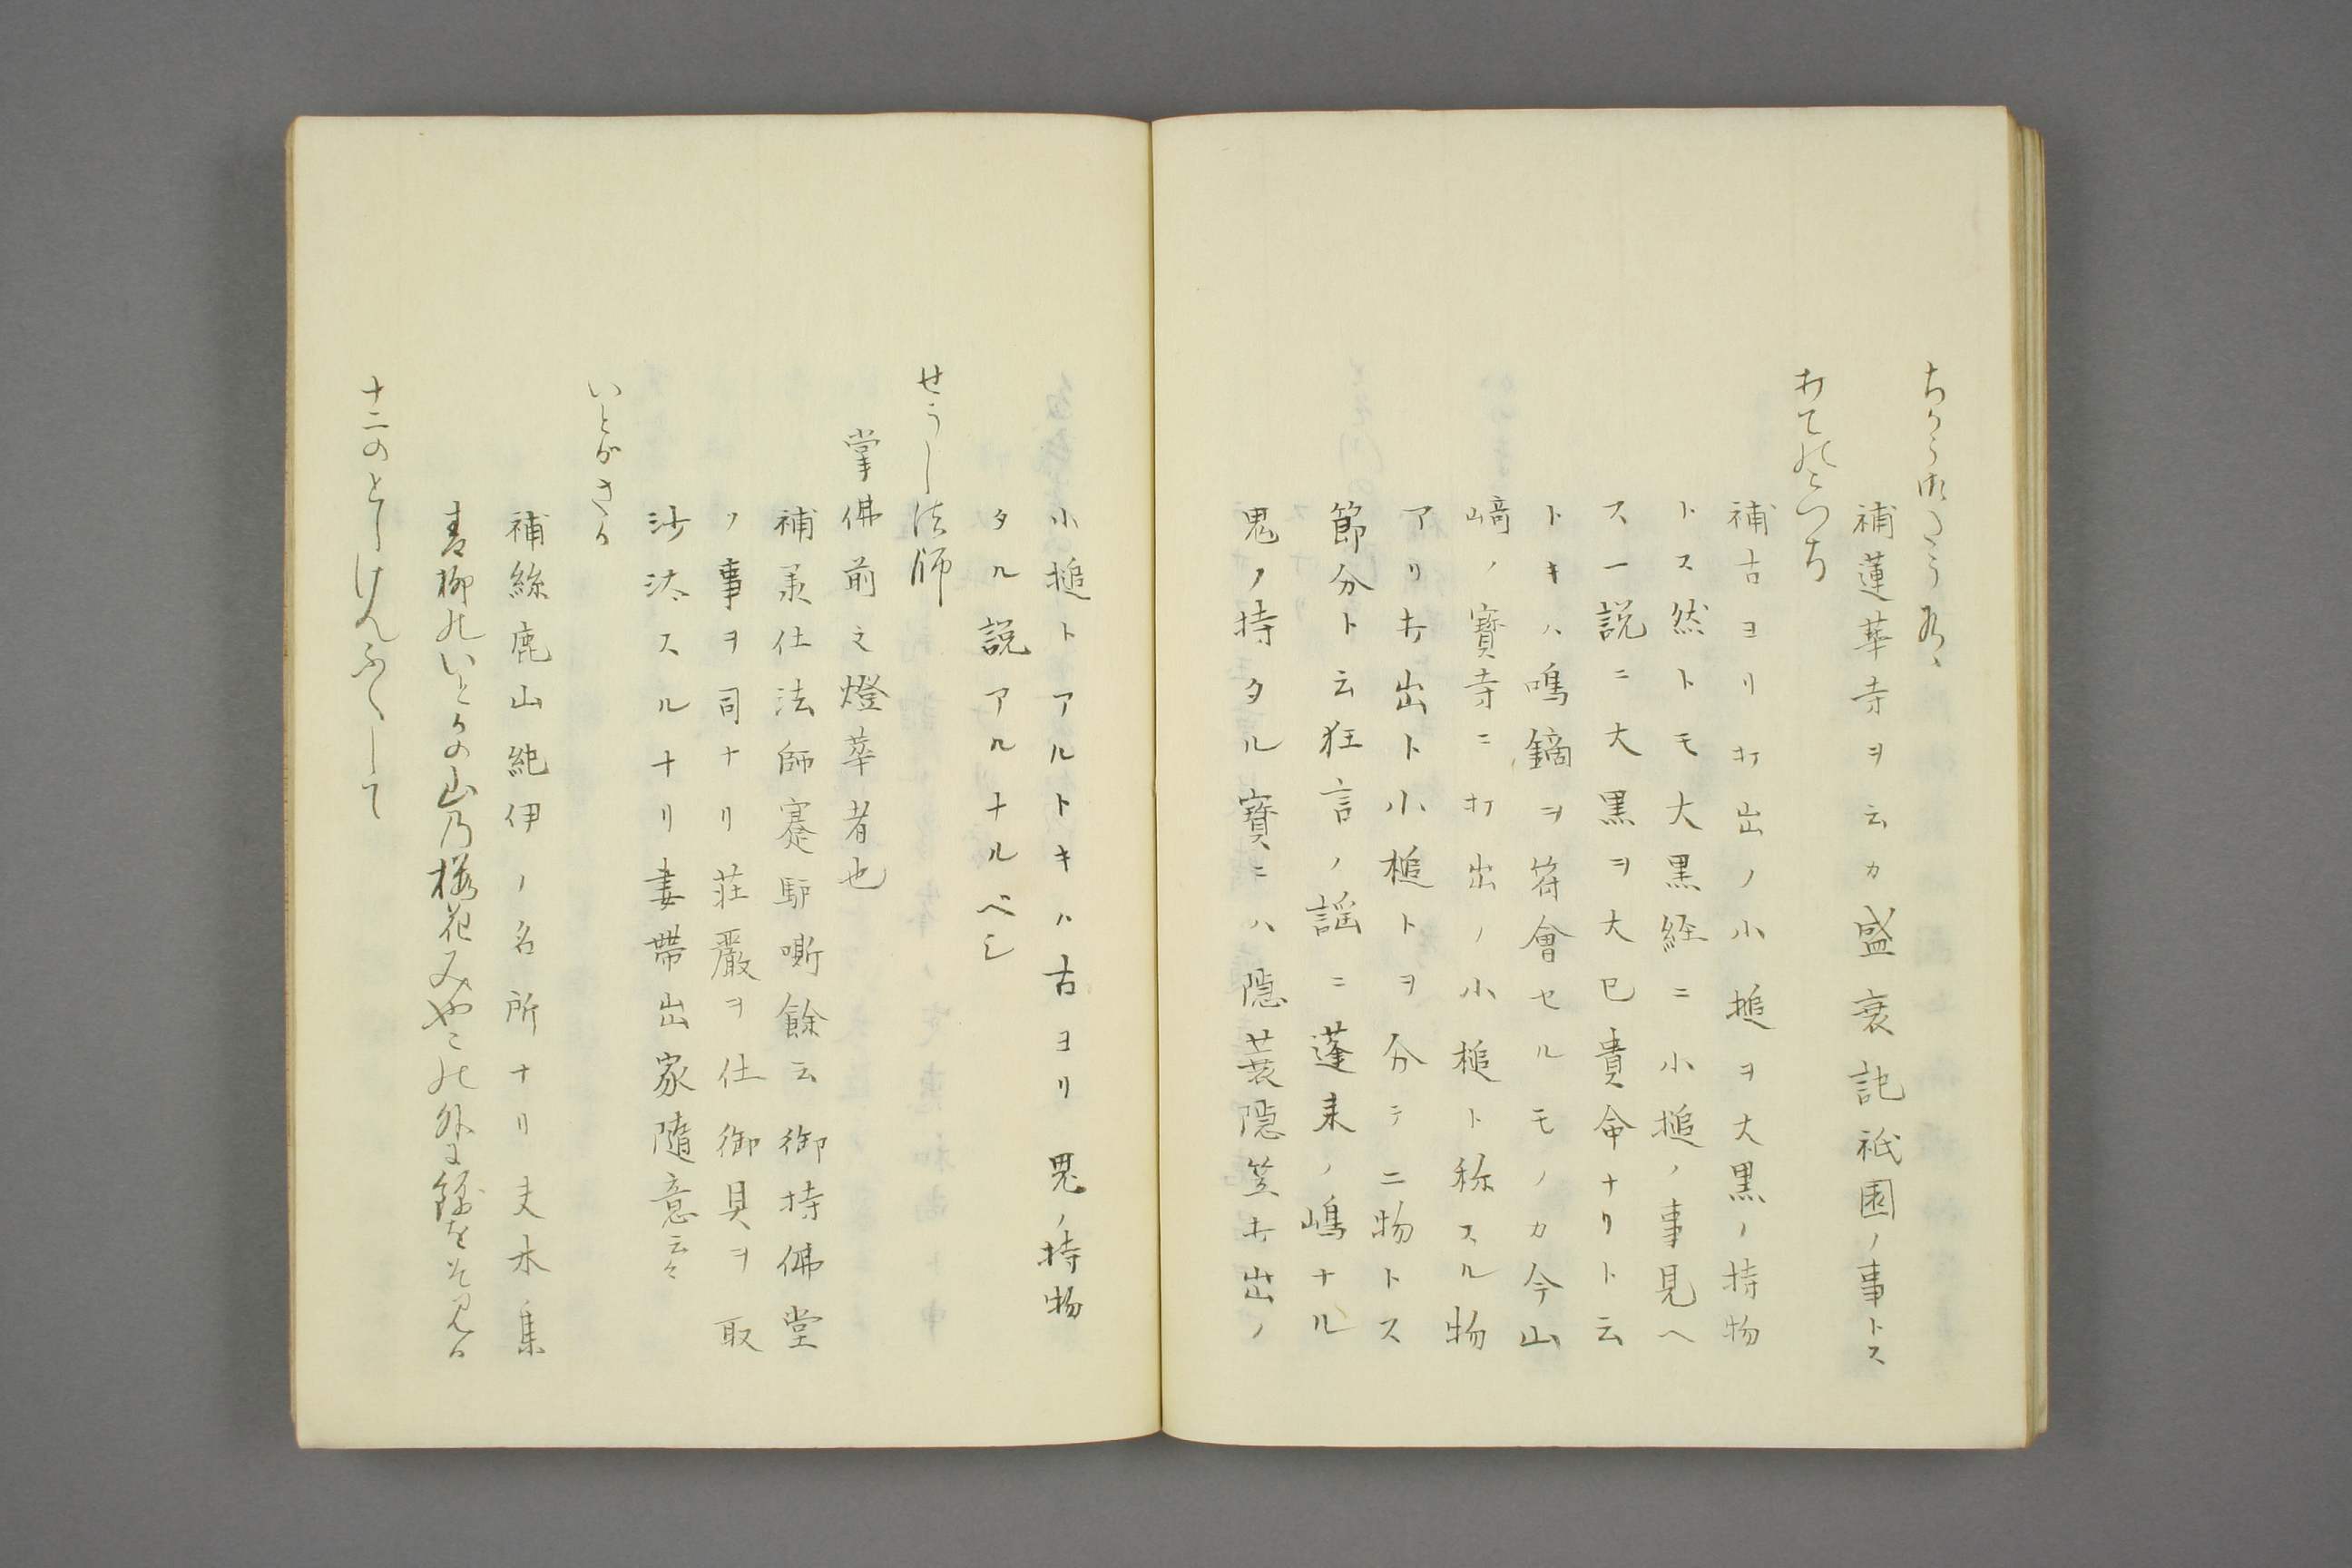 補蓮華寺ヲ云カ盛衰記祇園ノ事トス
打てのこつち
補古ヨリ打出ノ小槌ヲ大黒ノ持物
トス然トモ大黒経ニ小槌ノ事見ヘ
ス一説ニ大黒ヲ大已貴命ナリト云
トキハ鳴鏑ヲ符會セルモノカ今山
﨑ノ寳寺ニ打出ノ小槌ト称スル物
アリ打出ト小槌トヲ分テ二物トス
節分ト云狂言ノ謡ニ蓬来ノ嶋ナル
鬼ノ持タル寳ニハ隠蓑隠笠打出ノ
小槌トアルトキハ古ヨリ鬼ノ持物
タル説アルナルベシ
せうし法師
掌佛前之燈華者也
補承仕法師蹇驢嘶餘云御持佛堂
ノ事ヲ司ナリ荘嚴ヲ仕御具ヲ取
沙汰スルナリ妻帯出家随意云々
いとがさか
補絲鹿山紀伊ノ名所ナリ夫木集
青柳のいとかの山乃櫻花みやこの外に錦をそ見る
十二のとしけんふくして